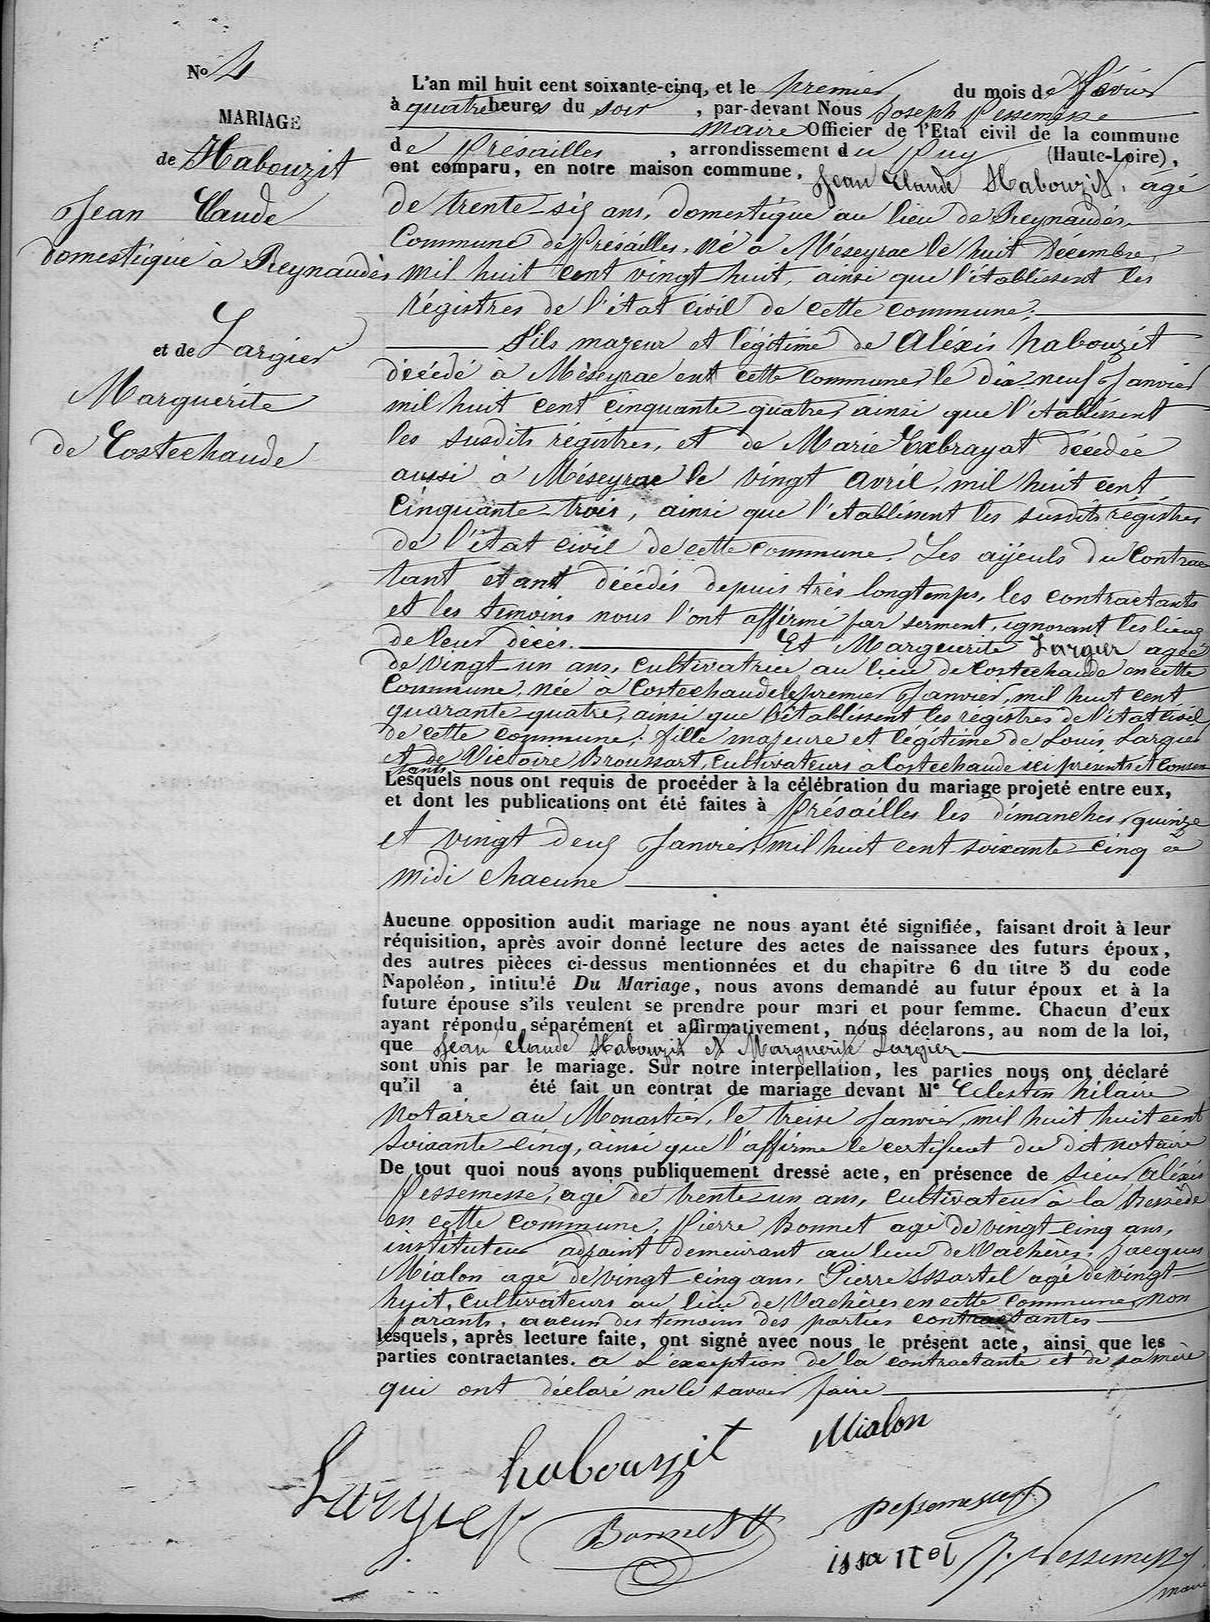 No 4
MARIAGE
de Habouzit
Jean Claude
domestique à Reynaudès
et de Largier
Marguerite
de Costechaude
L'an mil huit cent soixante-cinq, et le premier du mois de Février
à quatre heures du soir, par-devant Nous Joseph Pessemesse
maire Officier de l'Etat civil de la commune
de Présailles, arrondissement du Puy (Haute-Loire),
ont comparu, en notre maison commune, Jean Claude Habouzit, agé
de trente-six ans, domestique au lieu de Reynaudès
Commune de Présailles, né à Méseyrac le huit Decembre
mil huit cent vingt-huit, ainsi que l'établissent les
régistres de l'état civil de cette commune;
fils majeur et légitime de Aléxis habouzit
décédé à Méseyrac ent cette commune le dix-neuf Janvier
mil huit cent cinquante-quatre, ainsi que l'établissent
les susdits régistres, et de Marie Exbrayat décédée
aussi à Méseyrac le vingt avril, mil huit cent
cinquante-trois, ainsi que l'établissent les susdits régistres
de l'état civil de cette commune. Les aïjeuls du contrac
tant étant décédés depuis très longtemps, les contractants
et les temoins nous l'ont affirmé par serment, ignorant les lieux
de leur décès. Et Marguerite Largier agée
de vingt-un ans, cultivatrice au lieu de Costechaude en cette
Commune, née à Costechaude le premier Janvier, mil huit cent
quarante-quatre, ainsi que l'établissent les régistres de l'état civil
de cette commune; fille majeure et légitime de Louis Largier
et de Victoire Broussart, cultivateurs à Costechaude ici présents et consen
tants
Lesquels nous ont requis de procéder à la célébration du mariage projeté entre eux,
et dont les publications ont été faites à Présailles les dimanches quinze
et vingt deux Janvier, mil huit cent soixante-cinq à
midi chacune
Aucune opposition audit mariage ne nous ayant été signifiée, faisant droit à leur
réquisition, après avoir donné lecture des actes de naissance des futurs époux,
des autres pièces ci-dessus mentionnées et du chapitre 6 du titre 5 du code
Napoléon, intitulé Du Mariage, nous avons demandé au futur époux et à la
future épouse s'ils veulent se prendre pour mari et pour femme. Chacun d'eux
ayant répondu séparément et affirmativement, nous déclarons, au nom de la loi,
que Jean Claude Habouzit et Marguerite Largier
sont unis par le mariage. Sur notre interpellation, les parties nous ont déclaré
qu'il a été fait un contrat de mariage devant Me Celestin hilaire
notaire au Monastier, le treise Janvier, mil huit huit cent
soixante-cinq, ainsi que l'affirme le certificat du dit notaire
De tout quoi nous avons publiquement dressé acte, en présence de sieur Aléxis
Pessemesse, agé de trente-un ans, cultivateur à la Besséde
en cette commune, Pierre Bonnet agé de vingt-cinq ans,
instituteur adjoint demeurant au lieu de Vachères; Jacques
Mialon agé de vingt-cinq ans, Pierre Issartel agé de vingt-
huit, cultivateurs au lieu de Vachères en cette commune, non
parants, aucun des temoins des parties contractantes
lesquels, après lecture faite, ont signé avec nous le présent acte, ainsi que les
parties contractantes. a l'exception de la contractante et de sa mère
qui ont déclaré ne le savoir faire
Mialon
habouzit
Largier
Bonnet
pessemesse
issartel
J. Pessemesse
maire